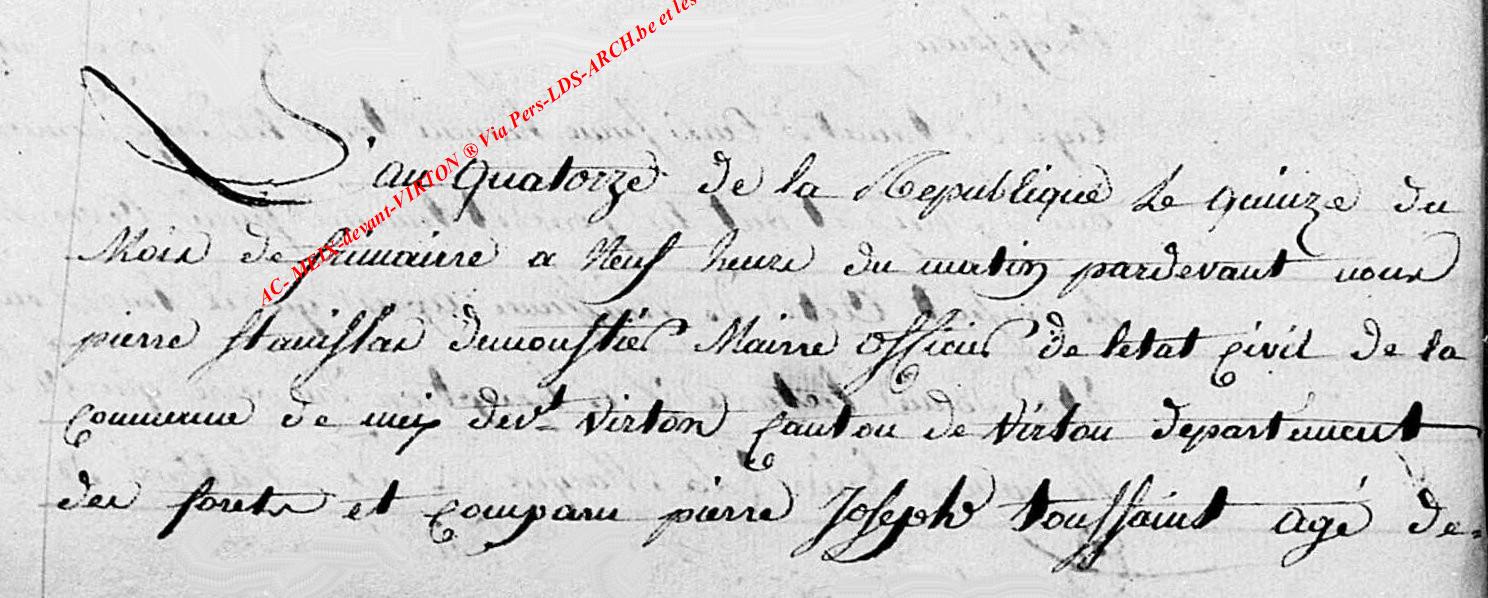 AC-MEIX-devant-VIRTON ® Via Pers-LDS-ARCH.be et les
L'an quatorze de la Republique le quinze du
Mois de frimairre a Neuf heure du matin pardevant nous
pierre stanislas demoustier Mairre officier de letat civil de la
commune de meix devt. Virton Canton de Virton departement
des forets et comparu pierre Joseph toussaint agé de